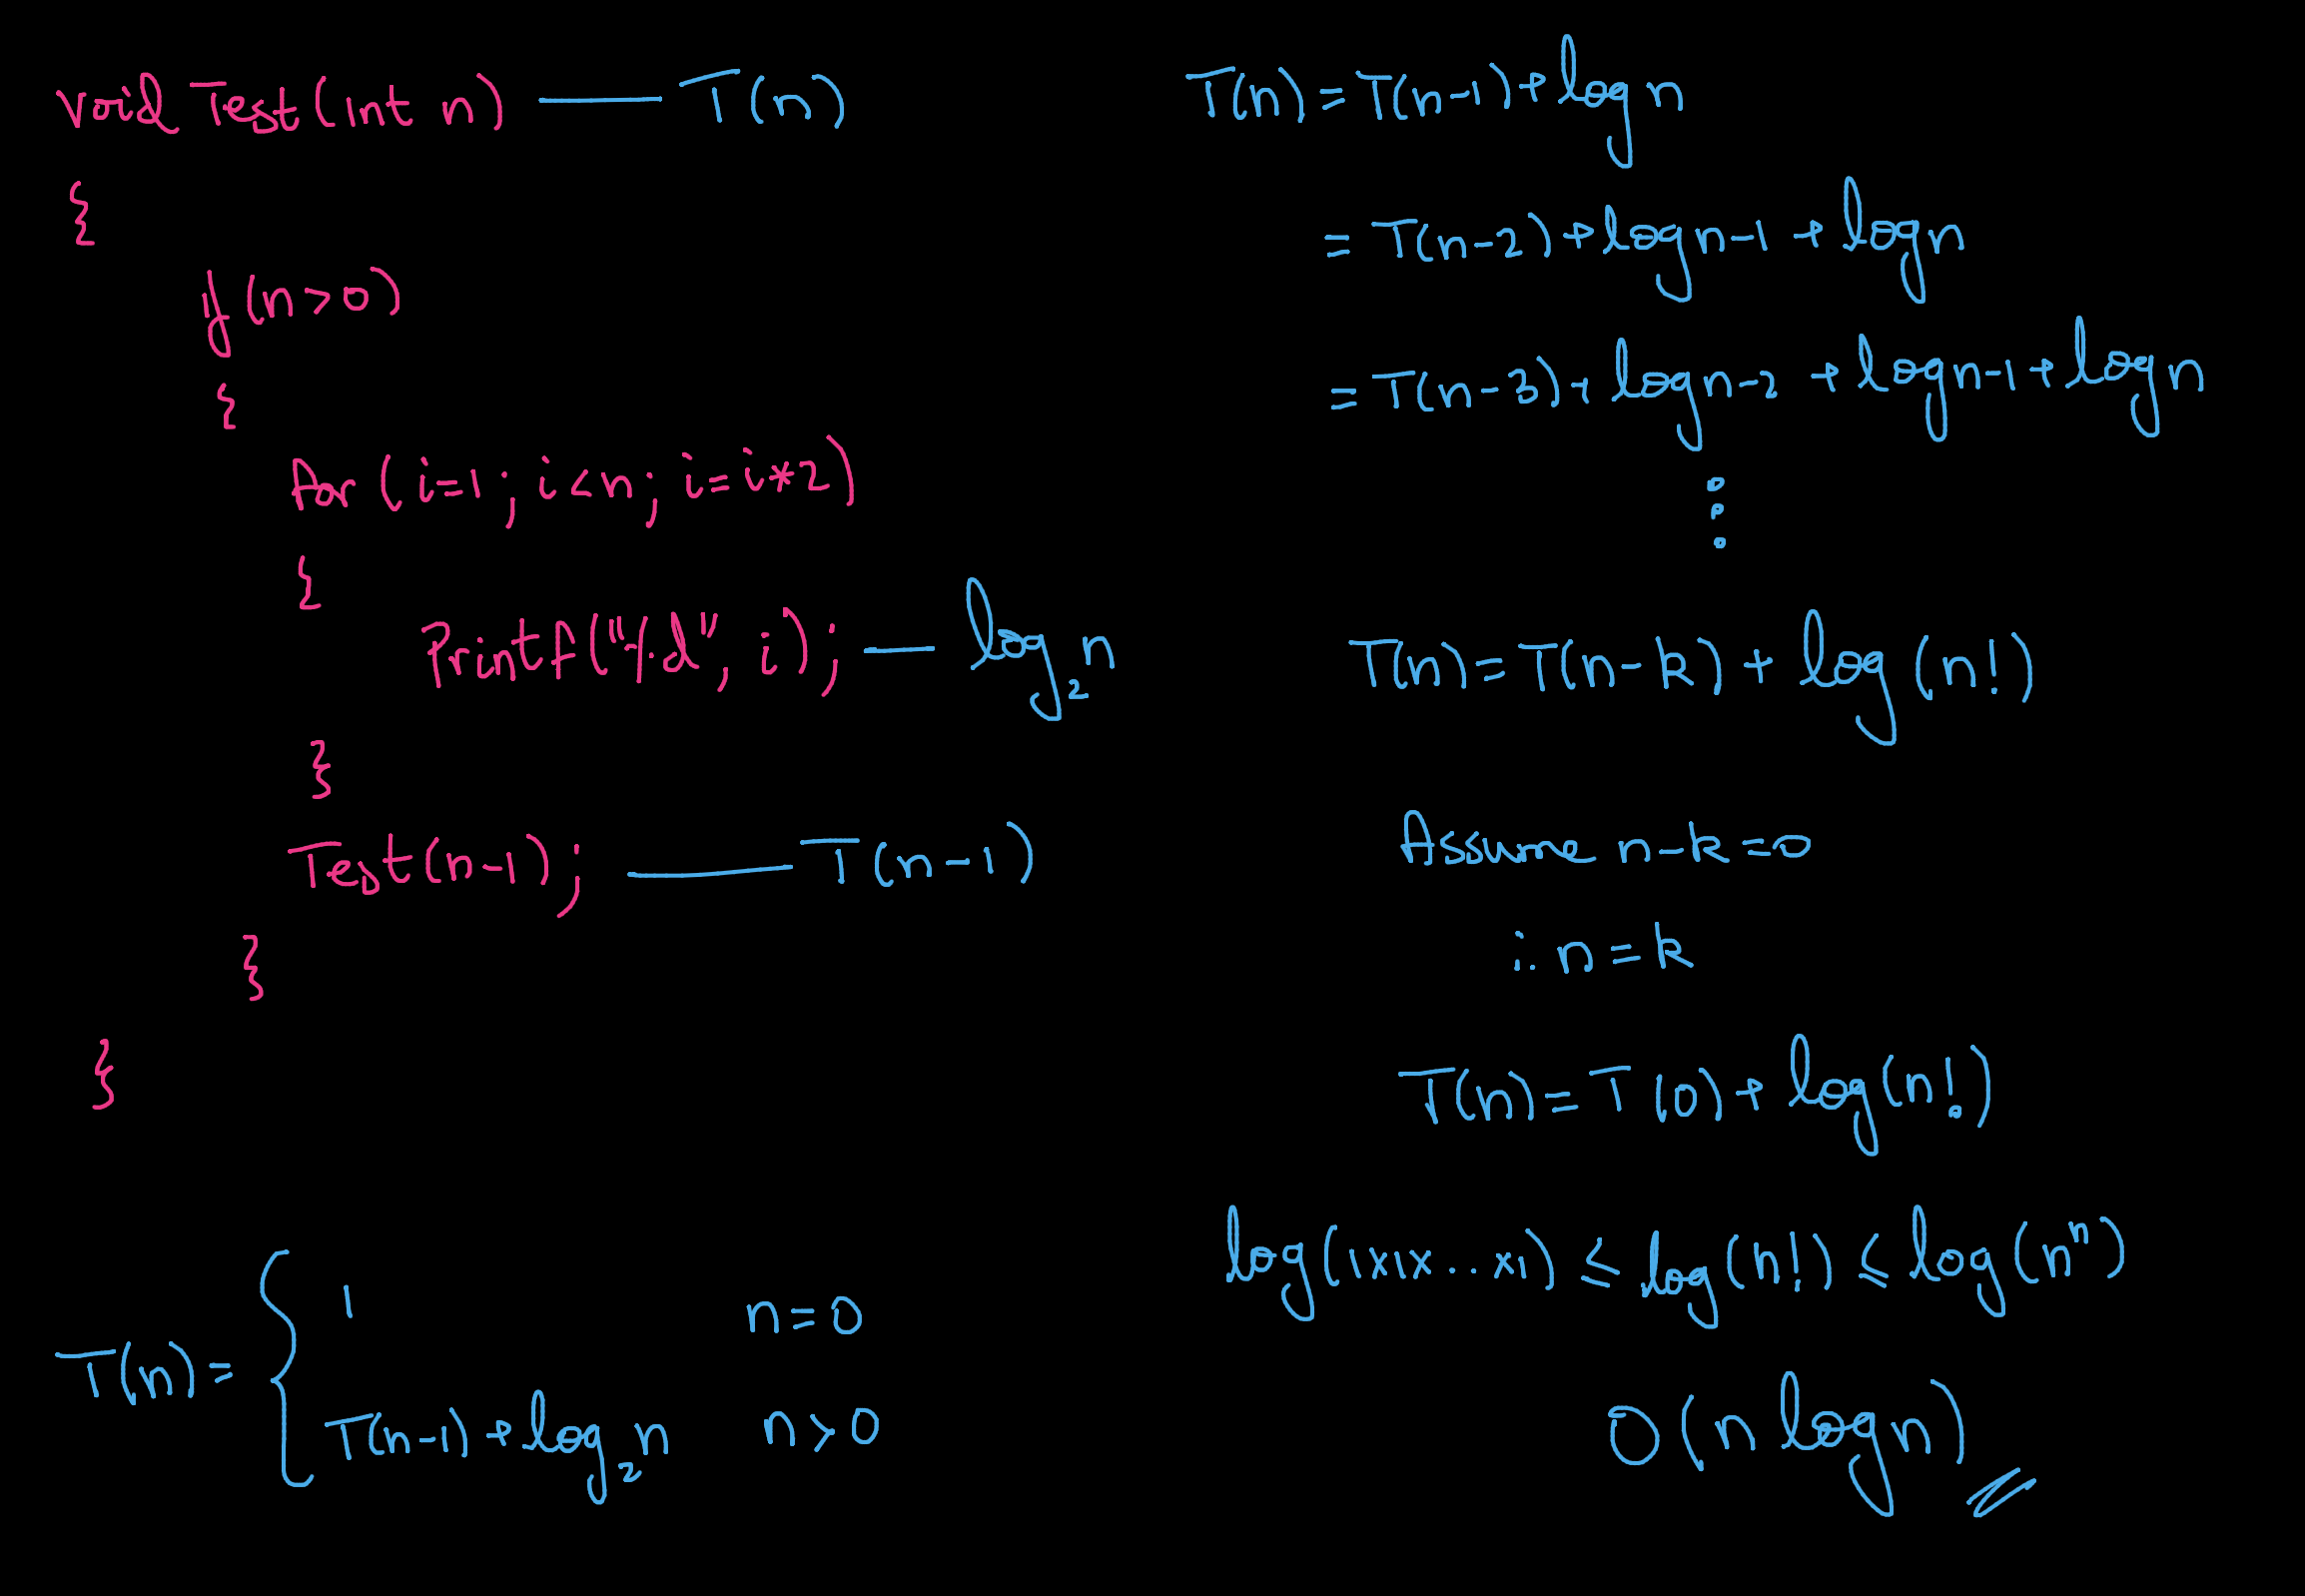 void Test(int n) — T(n)
{
if(n>0)
{
for(i=1; i<n; i=i*2)
{
Printf("%d", i); — log₂n
}
Test(n-1); — T(n-1)
}
}
T(n) = {
1 n=0
T(n-1)+log₂n n>0
T(n)=T(n-1)+log n
= T(n-2)+log n-1 + log n
= T(n-3)+ log n-2 + log n-1 + log n
⋮
T(n)=T(n-k)+log(n!)
Assume n-k=0
∴ n=k
T(n)=T(0)+log(n!)
log(1×1×..×1) ≤ log(n!) ≤ log(nⁿ)
O(n log n)